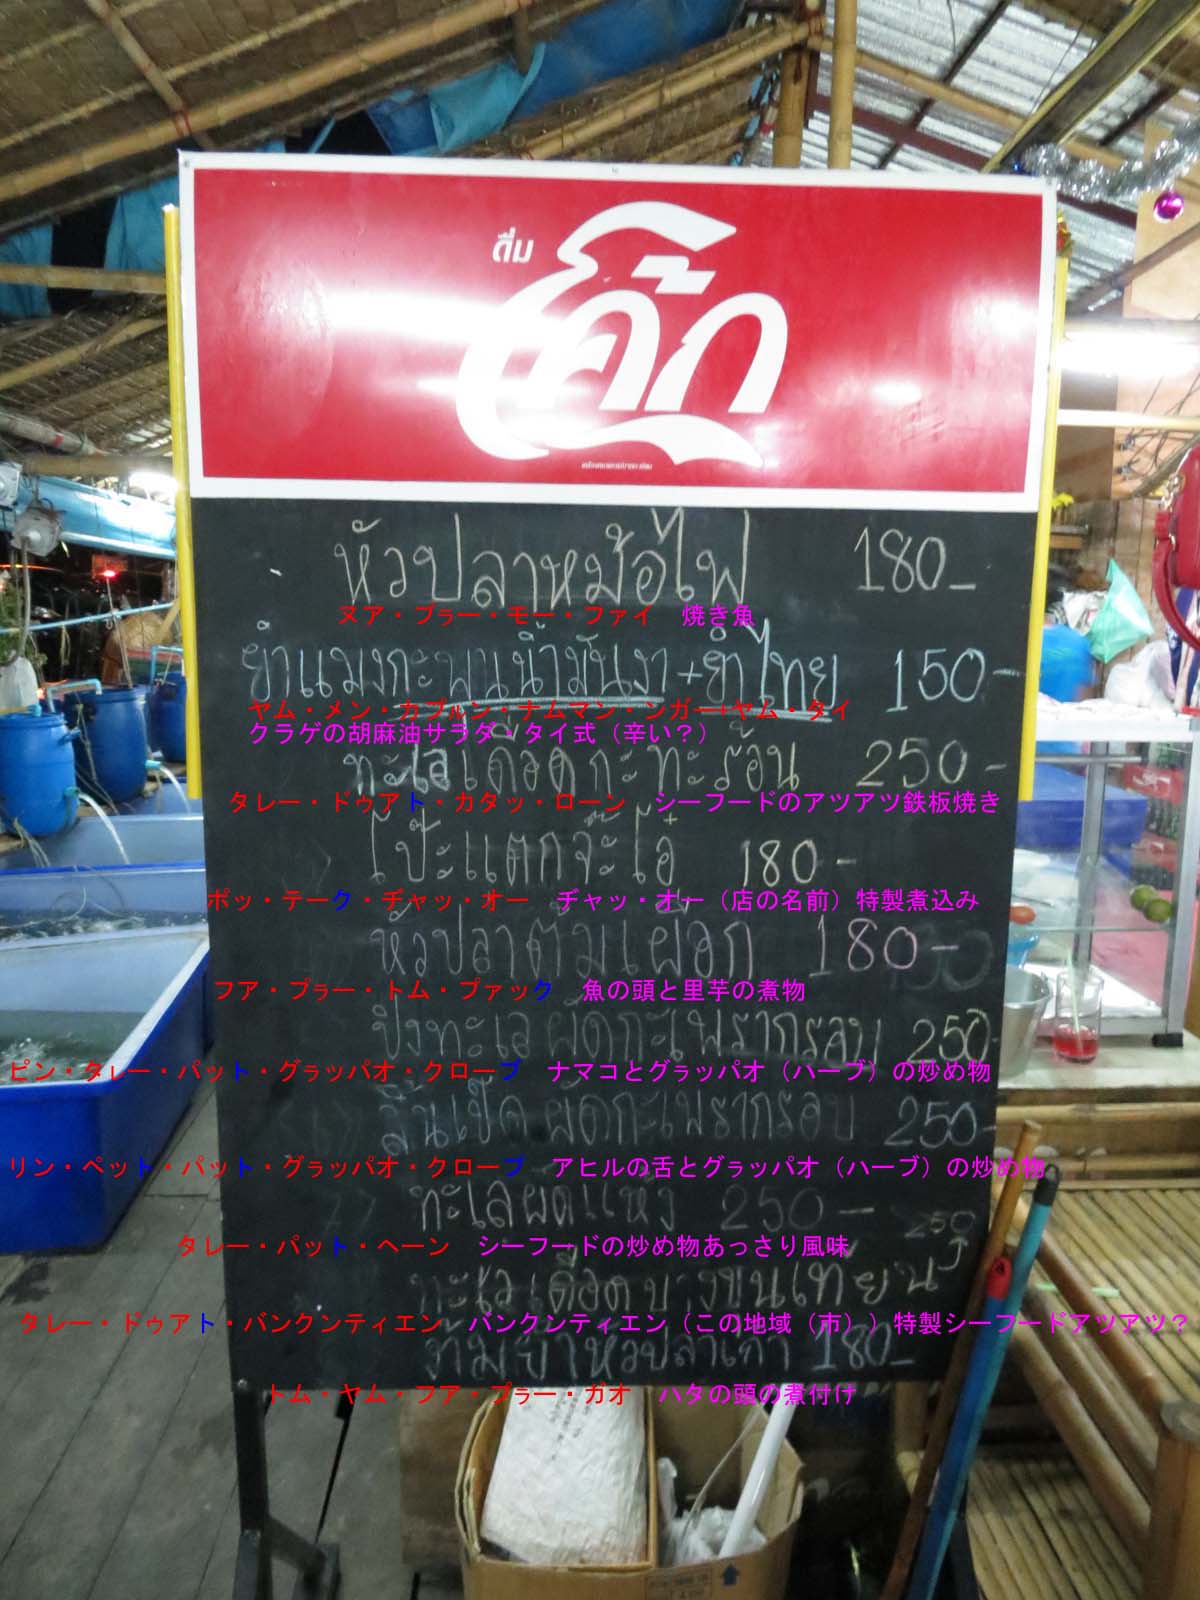 ดื่ม
โค้ก
หัวปลาหม้อไฟ 180-
ヌア・プラー・モー・ファイ 焼き魚
ยำแมงกะพุนน้ำมันงา+ยำไทย 150-
ヤム・メン・カプルン・ナムマン・ンガー+ヤム・タイ
クラゲの胡麻油サラダ・タイ式（辛い？）
ทะเลเดือดกะทะร้อน 250-
タレー・ドゥアト・カタッ・ローン シーフードのアツアツ鉄板焼き
โป๊ะแตกจ๊ะโอ๋ 180-
ポッ・テーク・ヂャッ・オー ヂャッ・オー（店の名前）特製煮込み
หัวปลาต้มเผือก 180-
フア・プラー・トム・プァック 魚の頭と里芋の煮物
ปิงทะเลผัดกะเพรากรอบ 250-
ピン・タレー・パット・グラッパオ・クローブ ナマコとグラッパオ（ハーブ）の炒め物
ลิ้นเป็ดผัดกะเพรากรอบ 250-
リン・ペット・パット・グラッパオ・クローブ アヒルの舌とグラッパオ（ハーブ）の炒め物
ทะเลผัดแห้ง 250-
タレー・パット・ヘーン シーフードの炒め物あっさり風味
ทะเลเดือดบางขุนเทียน 250
タレー・ドゥアト・バンクンティエン バンクンティエン（この地域（市））特製シーフードアツアツ？
ต้มยำหัวปลาเก๋า 180-
トム・ヤム・フア・プラー・ガオ ハタの頭の煮付け